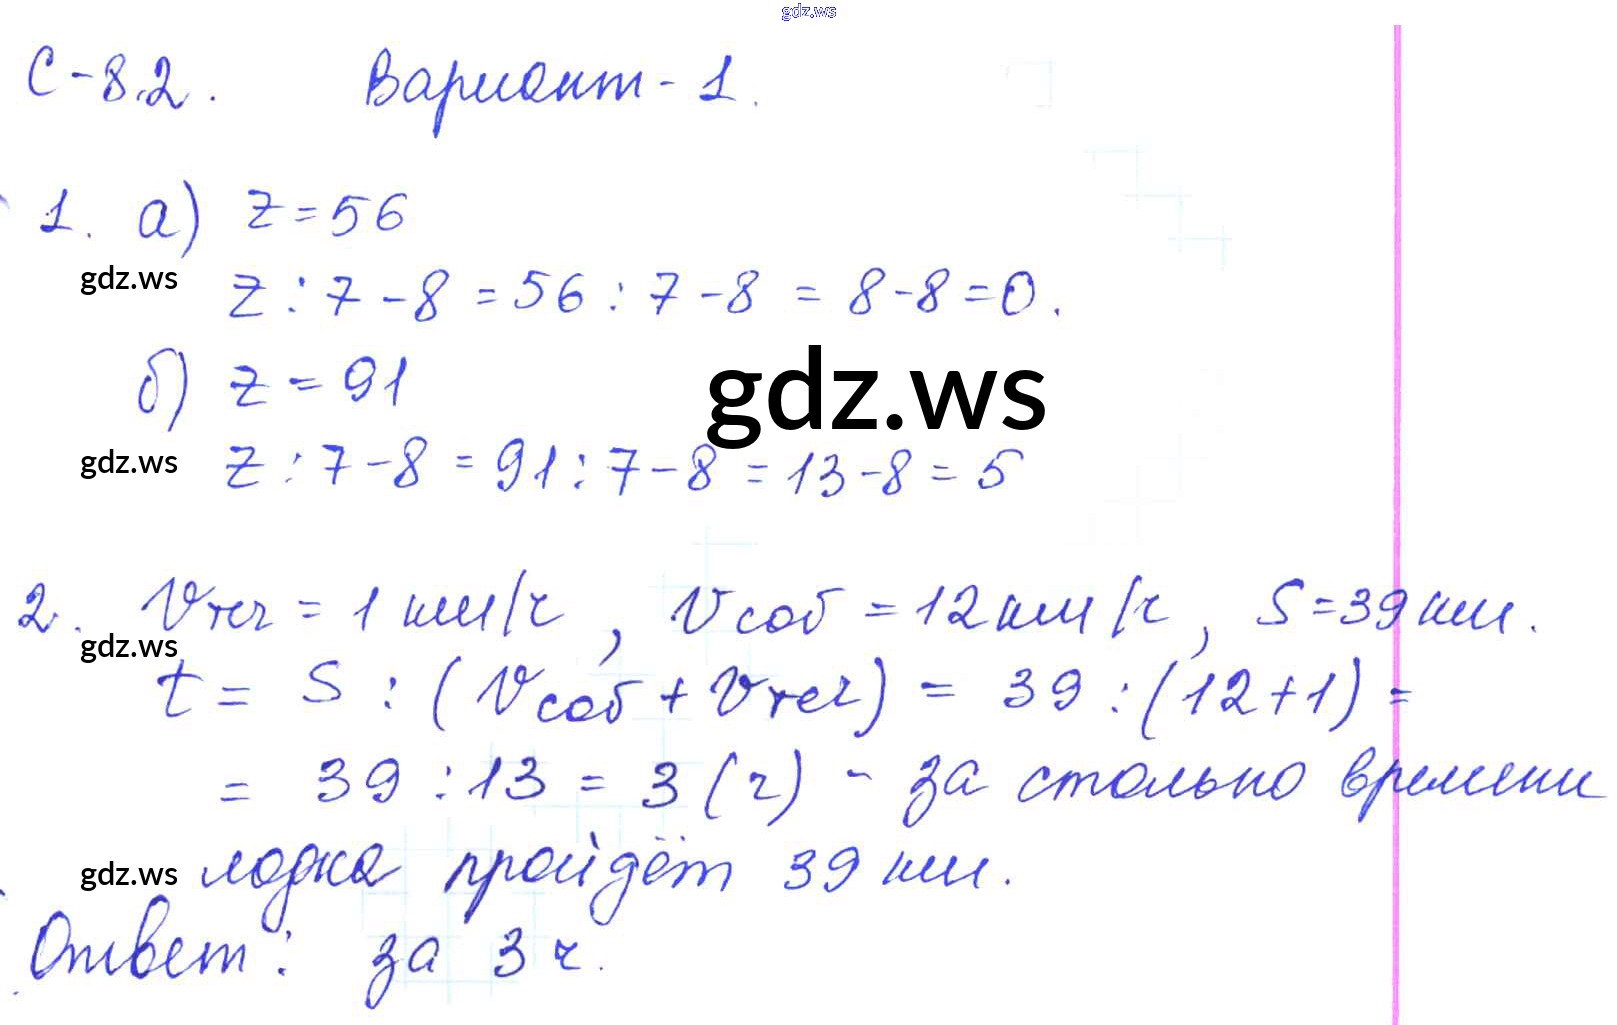 gdz.ws
С-8.2. Вариант-1.
1. а) z=56
gdz.ws
z:7-8=56:7-8=8-8=0.
gdz.ws
б) z=91
gdz.ws
z:7-8=91:7-8=13-8=5
2. Vтеч=1 км/ч, Vсоб=12 км/ч, S=39 км.
gdz.ws
t=S:(Vсоб+Vтеч)=39:(12+1)=
=39:13=3(ч)-за столько времени
gdz.ws
лодка пройдёт 39 км.
Ответ: за 3 ч.